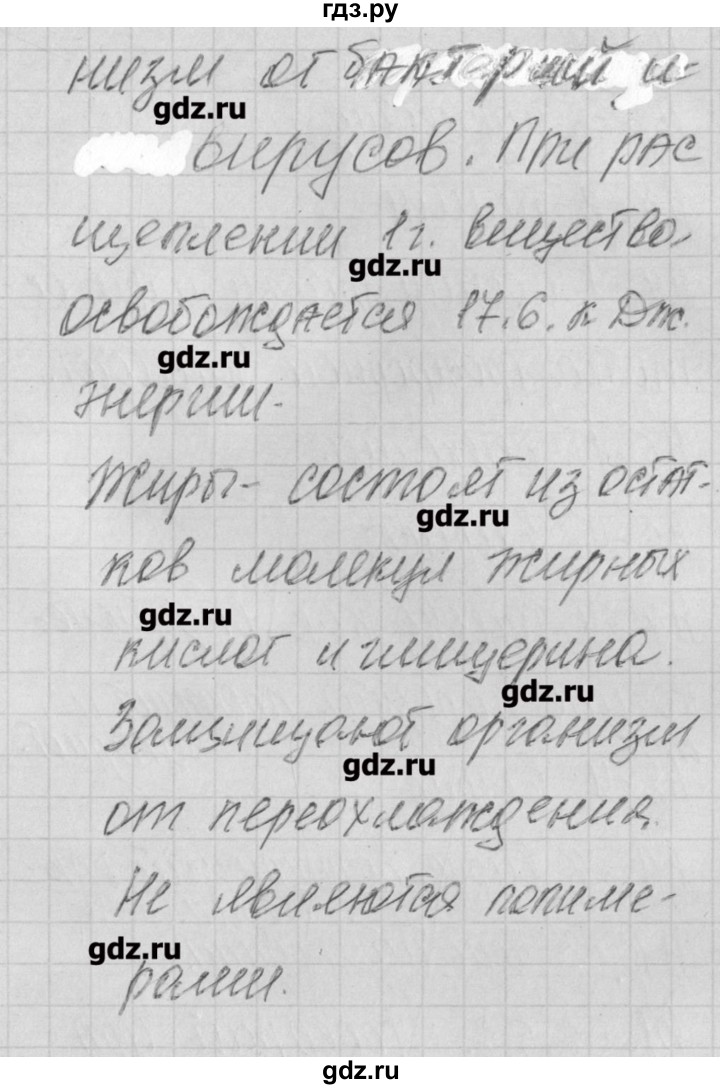 гдз.ру
низм от бактерий и
gdz.ru
вирусов. При рас
щеплении 1г. вещество
gdz.ru
освобождается 17.6. кДж.
gdz.ru
энергии.
Жиры - состоят из остат-
gdz.ru
ков молекул жирных
gdz.ru
кислот и глицерина.
gdz.ru
Защищают организм
gdz.ru
от переохлаждения.
Не являются полиме-
gdz.ru
рами.
gdz.ru